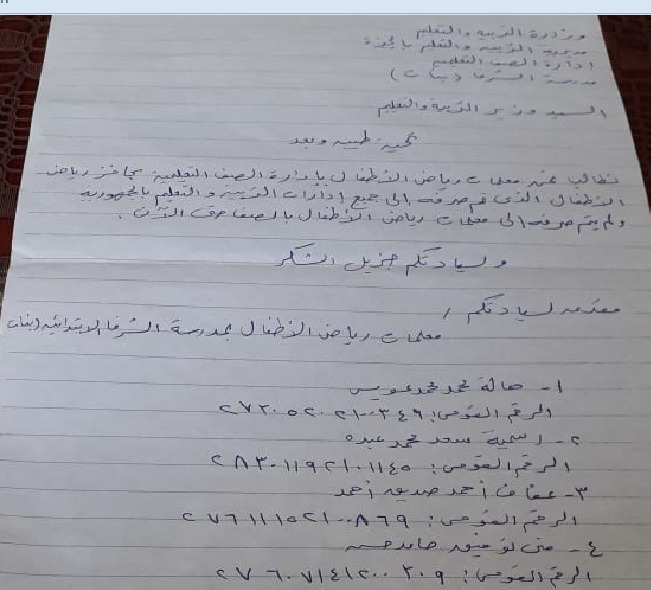 وزارة التربية والتعليم
مديرية التربية والتعليم بالجيزة
إدارة الصف التعليمية
مدرسة الشرفا (بنات)
السيد وزير التربية والتعليم
تحية طيبة وبعد
نطالب نحن معلمات رياض الأطفال بإدارة الصف التعليمية بحافز رياض
الأطفال الذى تم صرفه إلى جميع إدارات التربية والتعليم بالجمهورية
ولم يتم صرفه إلى معلمات رياض الأطفال بالصف حتى الآن.
ولسيادتكم جزيل الشكر
مقدمه لسيادتكم /
معلمات رياض الأطفال بمدرسة الشرفا الابتدائية بنات
١- هالة محمد محمد عويس
الرقم القومى: ٢٧٢٠٥٢٠٢١٠٠٣٤٦
٢- رسمية سعد محمد عبده
الرقم القومى: ٢٨٣٠١١٩٢١٠١١٤٥
٣- عفاف أحمد صديق أحمد
الرقم القومى: ٢٧٦١١١٥٢١٠٠٨٦٩
٤- منى توفيق حامد حسن
الرقم القومى: ٢٧٦٠٧١٤١٢٠٠٣٠٩